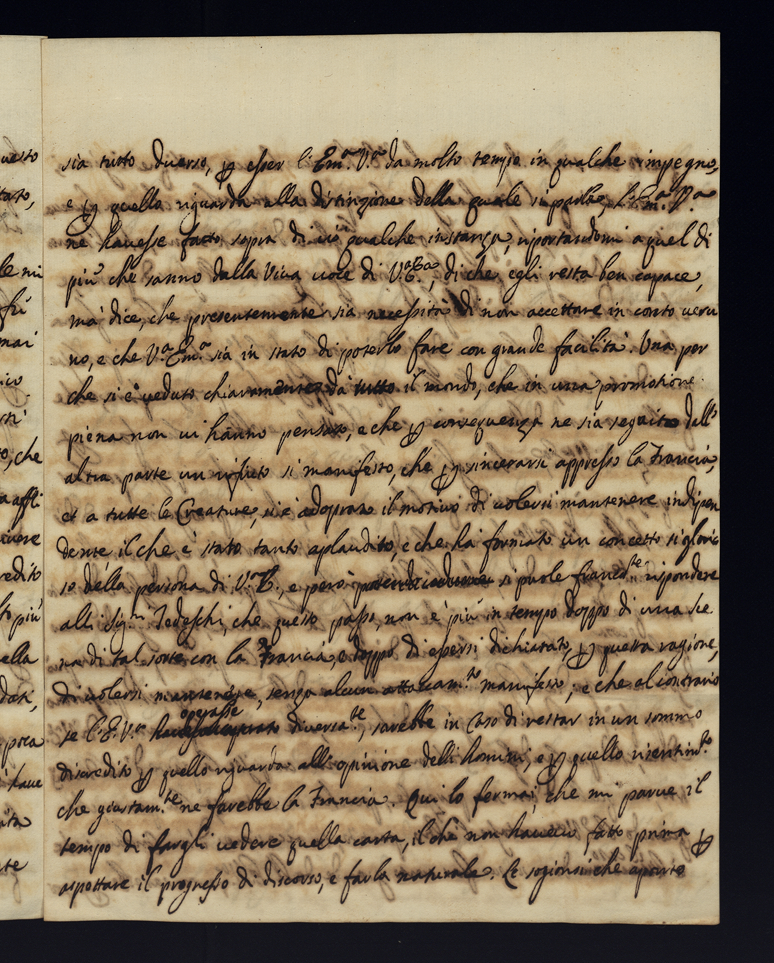 sia tutto diverso, ꝑ esser l'Em.ª V.ª da molto tempo in qualche impegno,
e ꝑ quello riguarda alla distinzione della quale si parla, L'Em.ª V.ª
ne havesse fatto sopra di ciò qualche instanza, riportandomi a quel di
più che sanno dalla viva voce di V.ª E.ª, di che egli resta ben capace,
mà dice, che presentemente sia necessità di non accettare in conto veru
no, e che V.ª Em.ª sia in stato di poterlo fare con grande facilità. Una per
che si è veduto chiaramente da tutto il mondo, che in una promotione
piena non vi hanno pensato, e che ꝑ conseguenza ne sia seguito dell'
altra parte un rifiuto si manifesto, che ꝑ sincerarsi appresso la Francia,
et a tutte le Creature, si è adoprato il motivo di volersi mantenere indipen
dente il che è stato tanto aplaudito, e che hà formato un concetto si glorio
so della persona di V.ª E., e però si puole francam.te rispondere
alli Sig.ri Tedeschi, che questo passo non è più in tempo doppo di una sce
na di tal sorte con la Francia, e doppo di essersi dichiarato, ꝑ questa ragione,
di volersi mantenere, senza alcun attaccam.to manifesto; e che al contrario
se l'E. V.ª operasse diversa.te, sarebbe in caso di restar in un sommo
discredito ꝑ quello riguarda all'opinione delli homini, e ꝑ quello risentim.to
che giustam.te ne farebbe la Francia. Qui lo fermai, che mi parve il
tempo di fargli vedere quella carta, il che non havevo fatto prima ꝑ
aspettare il progresso di discorso, e farla naturale. Le sogionsi che aperto